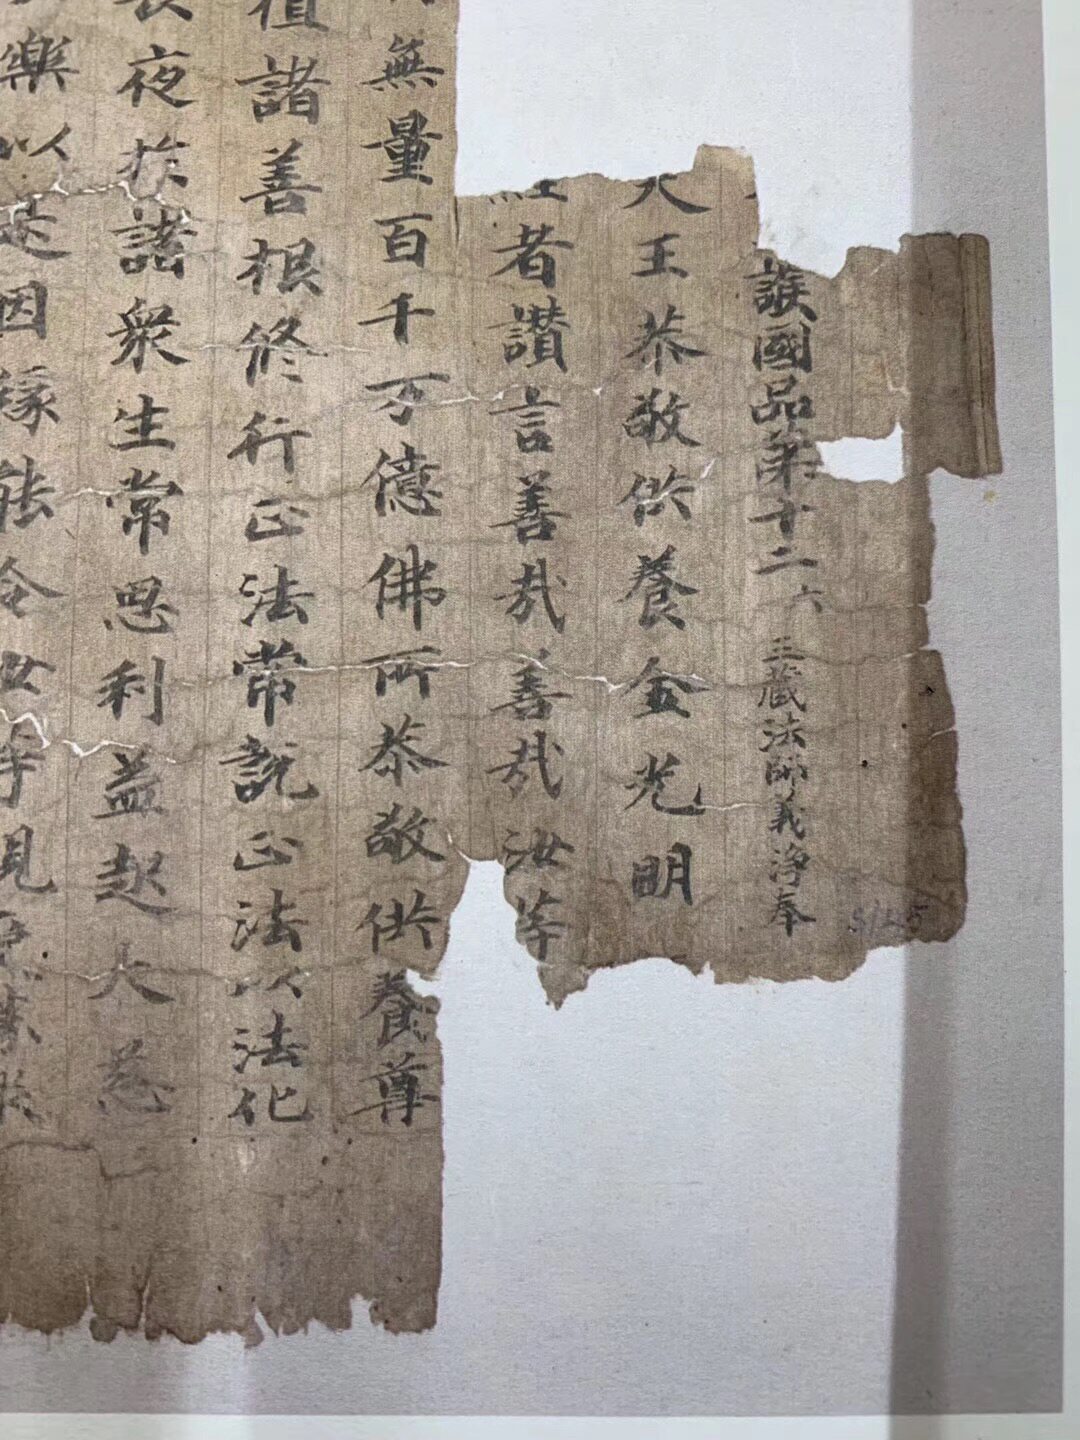 護國品第十二 六 三藏法師義淨奉
S125
天王恭敬供養金光明
經者讚言善哉善哉汝等
無量百千万億佛所恭敬供養尊
植諸善根修行正法常說正法以法化
夜於諸衆生常思利益起大慈
樂以是因緣能令汝等見